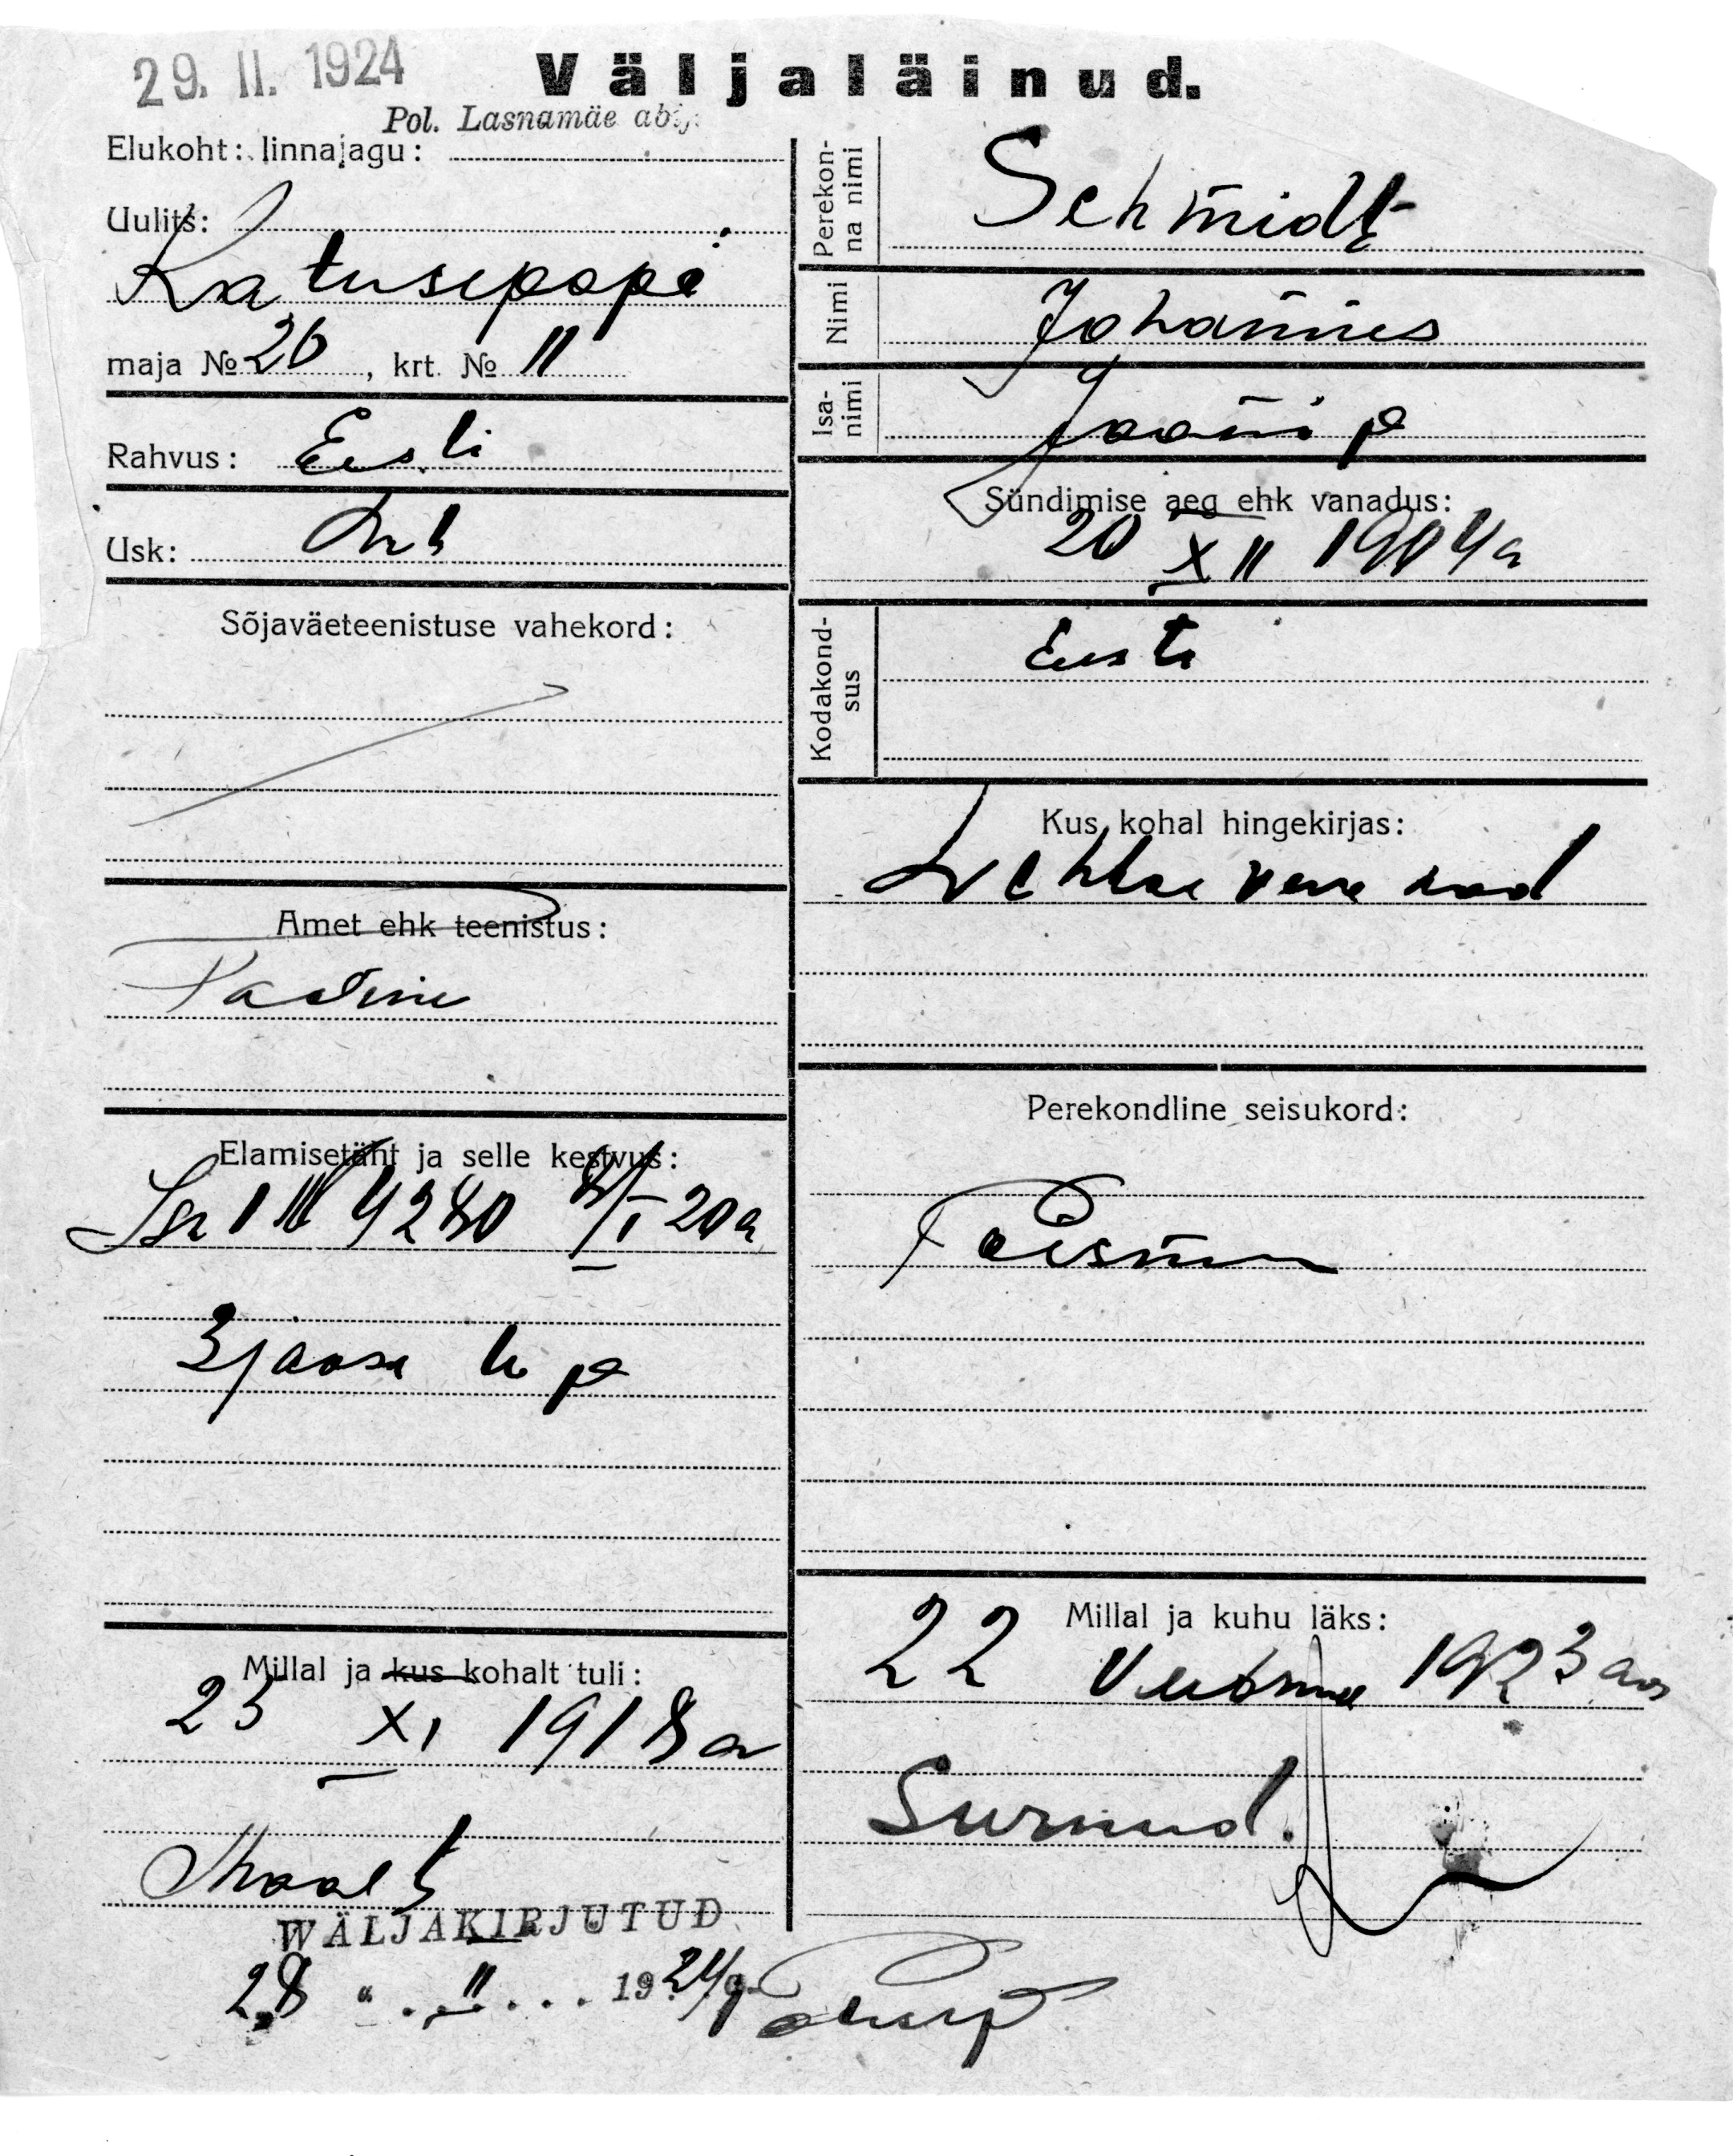 29. II. 1924
Väljaläinud.
Pol. Lasnamäe abij.
Elukoht: linnajagu:
Uulits:
Katusepapi
maja № 26, krt. № 11
Rahvus: Eesti
Usk: Lut
Sõjaväeteenistuse vahekord:
Amet ehk teenistus:
Elamisetäht ja selle kestvus:
4280 I 20 a
3 jaosk
Millal ja kus kohalt tuli:
23 XI 1918 a
Maalt
WÄLJAKIRJUTUD
28 " II 1924
Perekonna nimi
Schmidt
Nimi
Johannes
Isanimi
Jaani p
Sündimise aeg ehk vanadus:
20 XII 1904 a
Kodakondsus
Eesti
Kus kohal hingekirjas:
Perekondline seisukord:
Poismees
Millal ja kuhu läks:
22 Veebruar 1923 aas
Surnud.